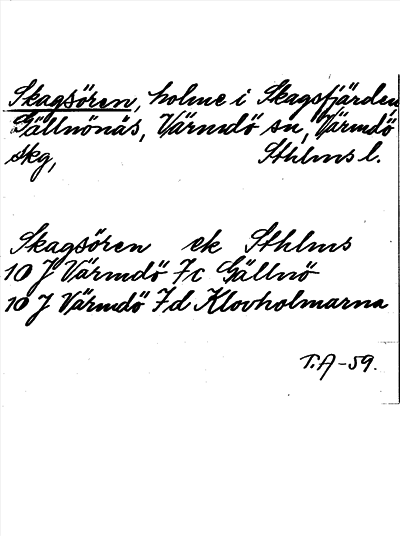 Skagsören, holme i Skagsfjärden
Gällnönäs, Värmdö sn, Värmdö
skg, Sthlms l.
Skagsören ek Sthlms
10 J Värmdö 7c Gällnö
10 J Värmdö 7d Klovholmarna
T.A-59.